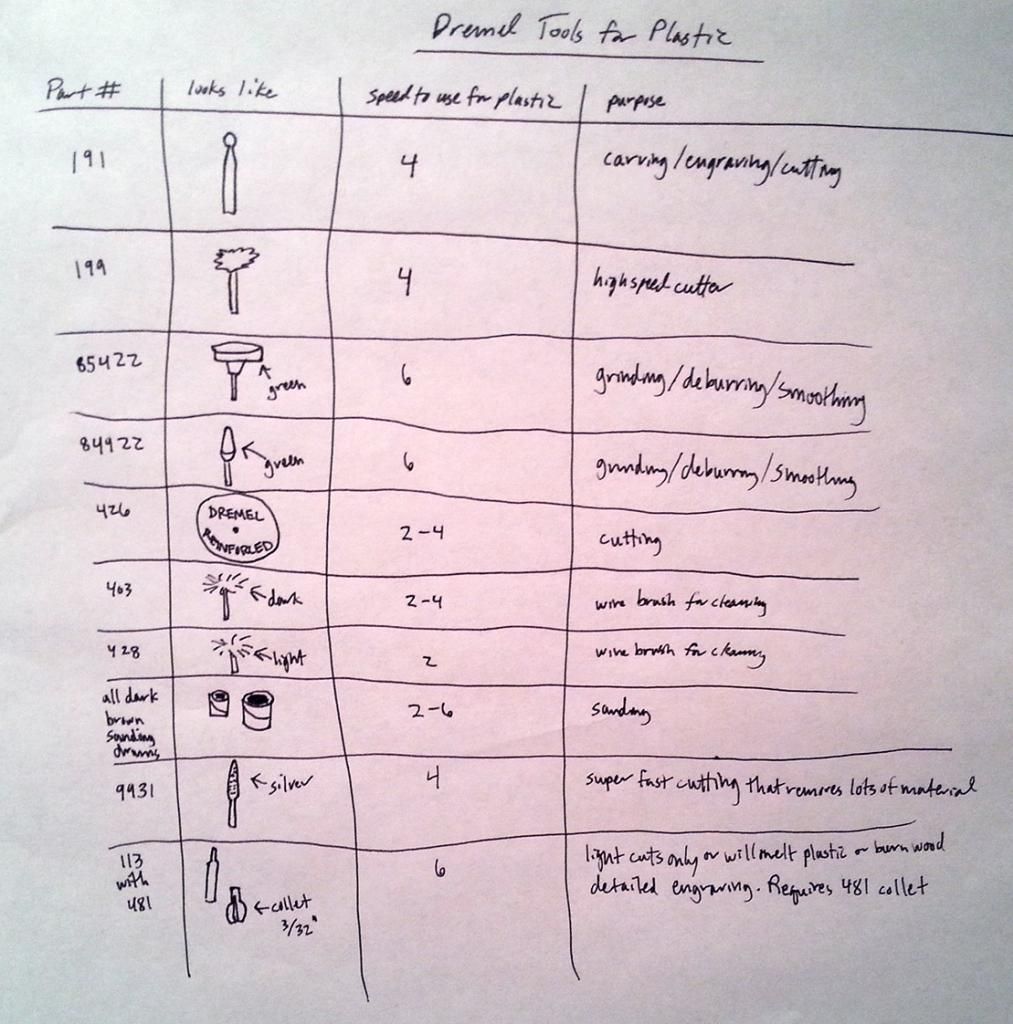 Dremel Tools for Plastic
Part # looks like speed to use for plastic purpose
191 4 carving/engraving/cutting
199 4 highspeed cutter
85422 green 6 grinding/deburring/smoothing
84922 green 6 grinding/deburring/smoothing
426 DREMEL REINFORCED 2-4 cutting
403 dark 2-4 wire brush for cleaning
428 light 2 wire brush for cleaning
all dark
brown
sanding
drums 2-6 sanding
9931 silver 4 super fast cutting that removes lots of material
113
with
481 collet
3/32" 6 light cuts only or will melt plastic or burn wood
detailed engraving. Requires 481 collet